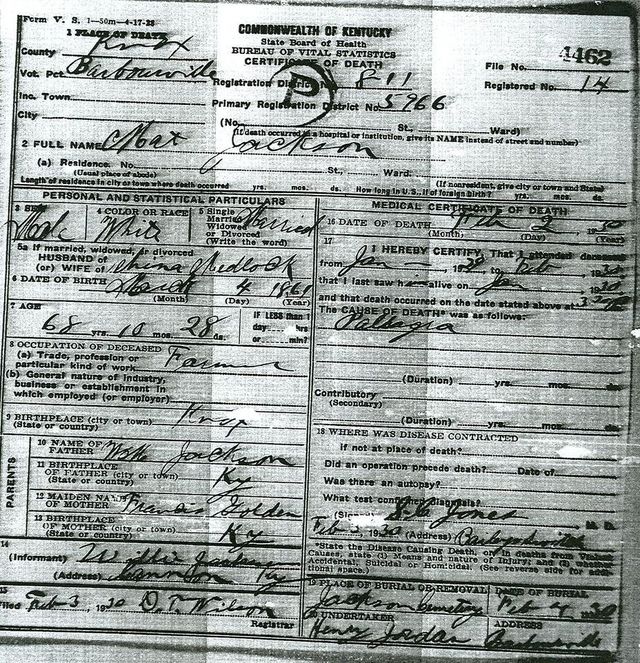 Form V. S. 1—50m—4-17-28
COMMONWEALTH OF KENTUCKY
State Board of Health
BUREAU OF VITAL STATISTICS
CERTIFICATE OF DEATH
1 PLACE OF DEATH
County Knox
Vot. Pct. Barbourville
Inc. Town
City
Registration District No. 811
Primary Registration District No. 5966
File No. 4462
Registered No. 14
(No. St., Ward)
(If death occurred in a hospital or institution, give its NAME instead of street and number)
2 FULL NAME Mat Jackson
(a) Residence. No. St., Ward:
(Usual place of abode) (If nonresident, give city or town and State)
Length of residence in city or town where death occurred yrs. mos. ds. How long in U. S., if of foreign birth? yrs. mos. ds.
PERSONAL AND STATISTICAL PARTICULARS
3 SEX Male
4 COLOR OR RACE White
5 Single Married Widowed or Divorced (Write the word) Married
5a If married, widowed, or divorced
HUSBAND of
(or) WIFE of Medlock
6 DATE OF BIRTH March 4 1861
(Month) (Day) (Year)
7 AGE
68 yrs. 10 mos. 28 ds.
IF LESS than 1 day hrs or min.?
8 OCCUPATION OF DECEASED
(a) Trade, profession or particular kind of work Farmer
(b) General nature of industry, business or establishment in which employed (or employer)
9 BIRTHPLACE (city or town) Knox
(State or country)
PARENTS
10 NAME OF FATHER Jackson
11 BIRTHPLACE OF FATHER (city or town) Ky
(State or country)
12 MAIDEN NAME OF MOTHER Francis Golden
13 BIRTHPLACE OF MOTHER (city or town) Ky
(State or country)
14
(Informant) Willie Jackson
(Address) Cannon Ky
15
Filed Feb 3, 1930 D. T. Wilson
Registrar
MEDICAL CERTIFICATE OF DEATH
16 DATE OF DEATH Feb 2 30
(Month) (Day) (Year)
17 I HEREBY CERTIFY, That I attended deceased
from Jan 192 to Feb 1930
that I last saw him alive on Jan 1930
and that death occurred on the date stated above at
The CAUSE OF DEATH* was as follows:
Pallagra
(Duration) yrs. mos. ds.
Contributory
(Secondary)
(Duration) yrs. mos. ds.
18 WHERE WAS DISEASE CONTRACTED
if not at place of death?
Did an operation precede death? Date of
Was there an autopsy?
What test confirmed diagnosis?
(Signed) Jones M. D.
Feb 3, 1930 (Address) Barbourville
*State the Disease Causing Death, or in deaths from Violent Causes, state (1) Means and nature of Injury; and (2) whether Accidental, Suicidal or Homicidal. (See reverse side for additional space.)
19 PLACE OF BURIAL OR REMOVAL Jackson Cemetery
DATE OF BURIAL Feb 4 30
20 UNDERTAKER Henry Jordan
ADDRESS Barbourville